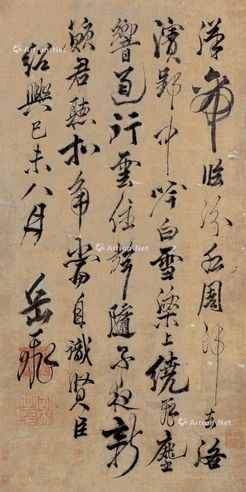 漢帝臨汾水周仙去洛
濱郢中吟白雪梁上繞飛塵
響遏行雲住聲隨子夜新
願君聽扣角當自識賢臣
紹興己未八月 岳飛
Artron.Net